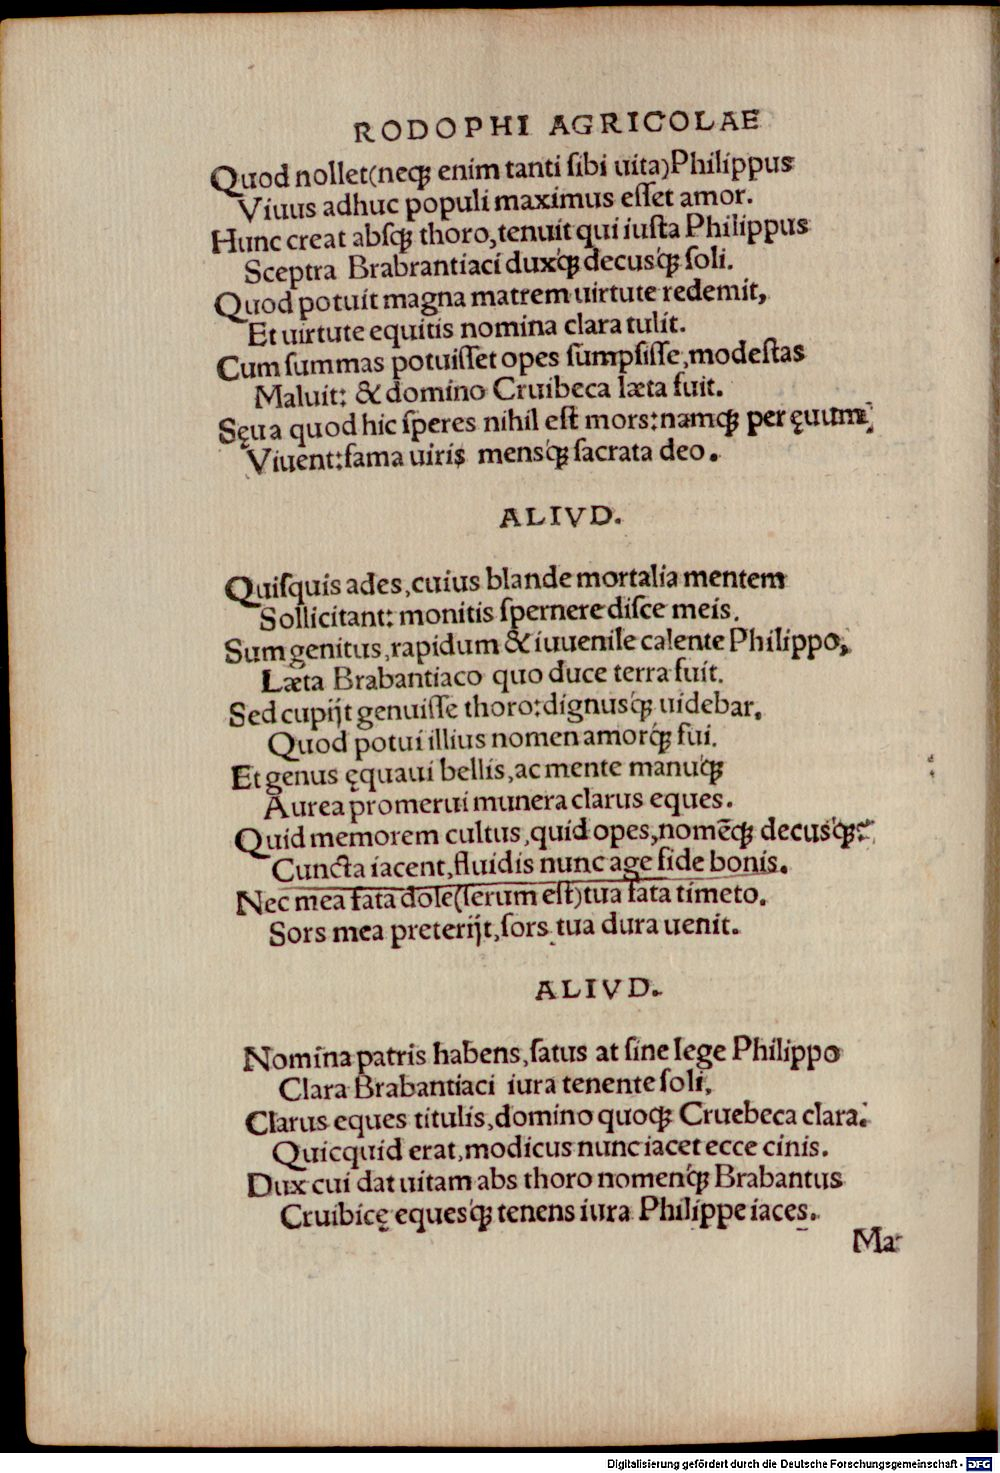 RODOPHI AGRICOLAE
Quod nollet(neqꝫ enim tanti ſibi uita)Philippus
Viuus adhuc populi maximus eſſet amor.
Hunc creat abſqꝫ thoro,tenuit qui iuſta Philippus
Sceptra Brabrantiaci duxqꝫ decusqꝫ ſoli.
Quod potuit magna matrem uirtute redemit,
Et uirtute equitis nomina clara tulit.
Cum ſummas potuiſſet opes ſumpſiſſe,modeſtas
Maluit: & domino Cruibeca læta fuit.
Sęua quod hic ſperes nihil eſt mors:namqꝫ per ęuum
Viuent:fama uiris mensqꝫ ſacrata deo.
ALIVD.
Quiſquis ades,cuius blande mortalia mentem
Sollicitant: monitis ſpernere diſce meis.
Sum genitus,rapidum & iuuenile calente Philippo,
Læta Brabantiaco quo duce terra fuit.
Sed cupijt genuiſſe thoro:dignusqꝫ uidebar,
Quod potui illius nomen amorqꝫ fui.
Et genus ęquaui bellis,ac mente manuqꝫ
Aurea promerui munera clarus eques.
Quid memorem cultus,quid opes,nomēqꝫ decusqꝫ?
Cuncta iacent,fluidis nunc age fide bonis.
Nec mea fata dole(ſerum eſt)tua fata timeto.
Sors mea preterijt,ſors tua dura uenit.
ALIVD.
Nomina patris habens,ſatus at ſine lege Philippo
Clara Brabantiaci iura tenente ſoli,
Clarus eques titulis,domino quoqꝫ Cruebeca clara:
Quicquid erat,modicus nunc iacet ecce cinis.
Dux cui dat uitam abs thoro nomenqꝫ Brabantus
Cruibicę equesqꝫ tenens iura Philippe iaces.
Ma-
Digitalisierung gefördert durch die Deutsche Forschungsgemeinschaft - DFG